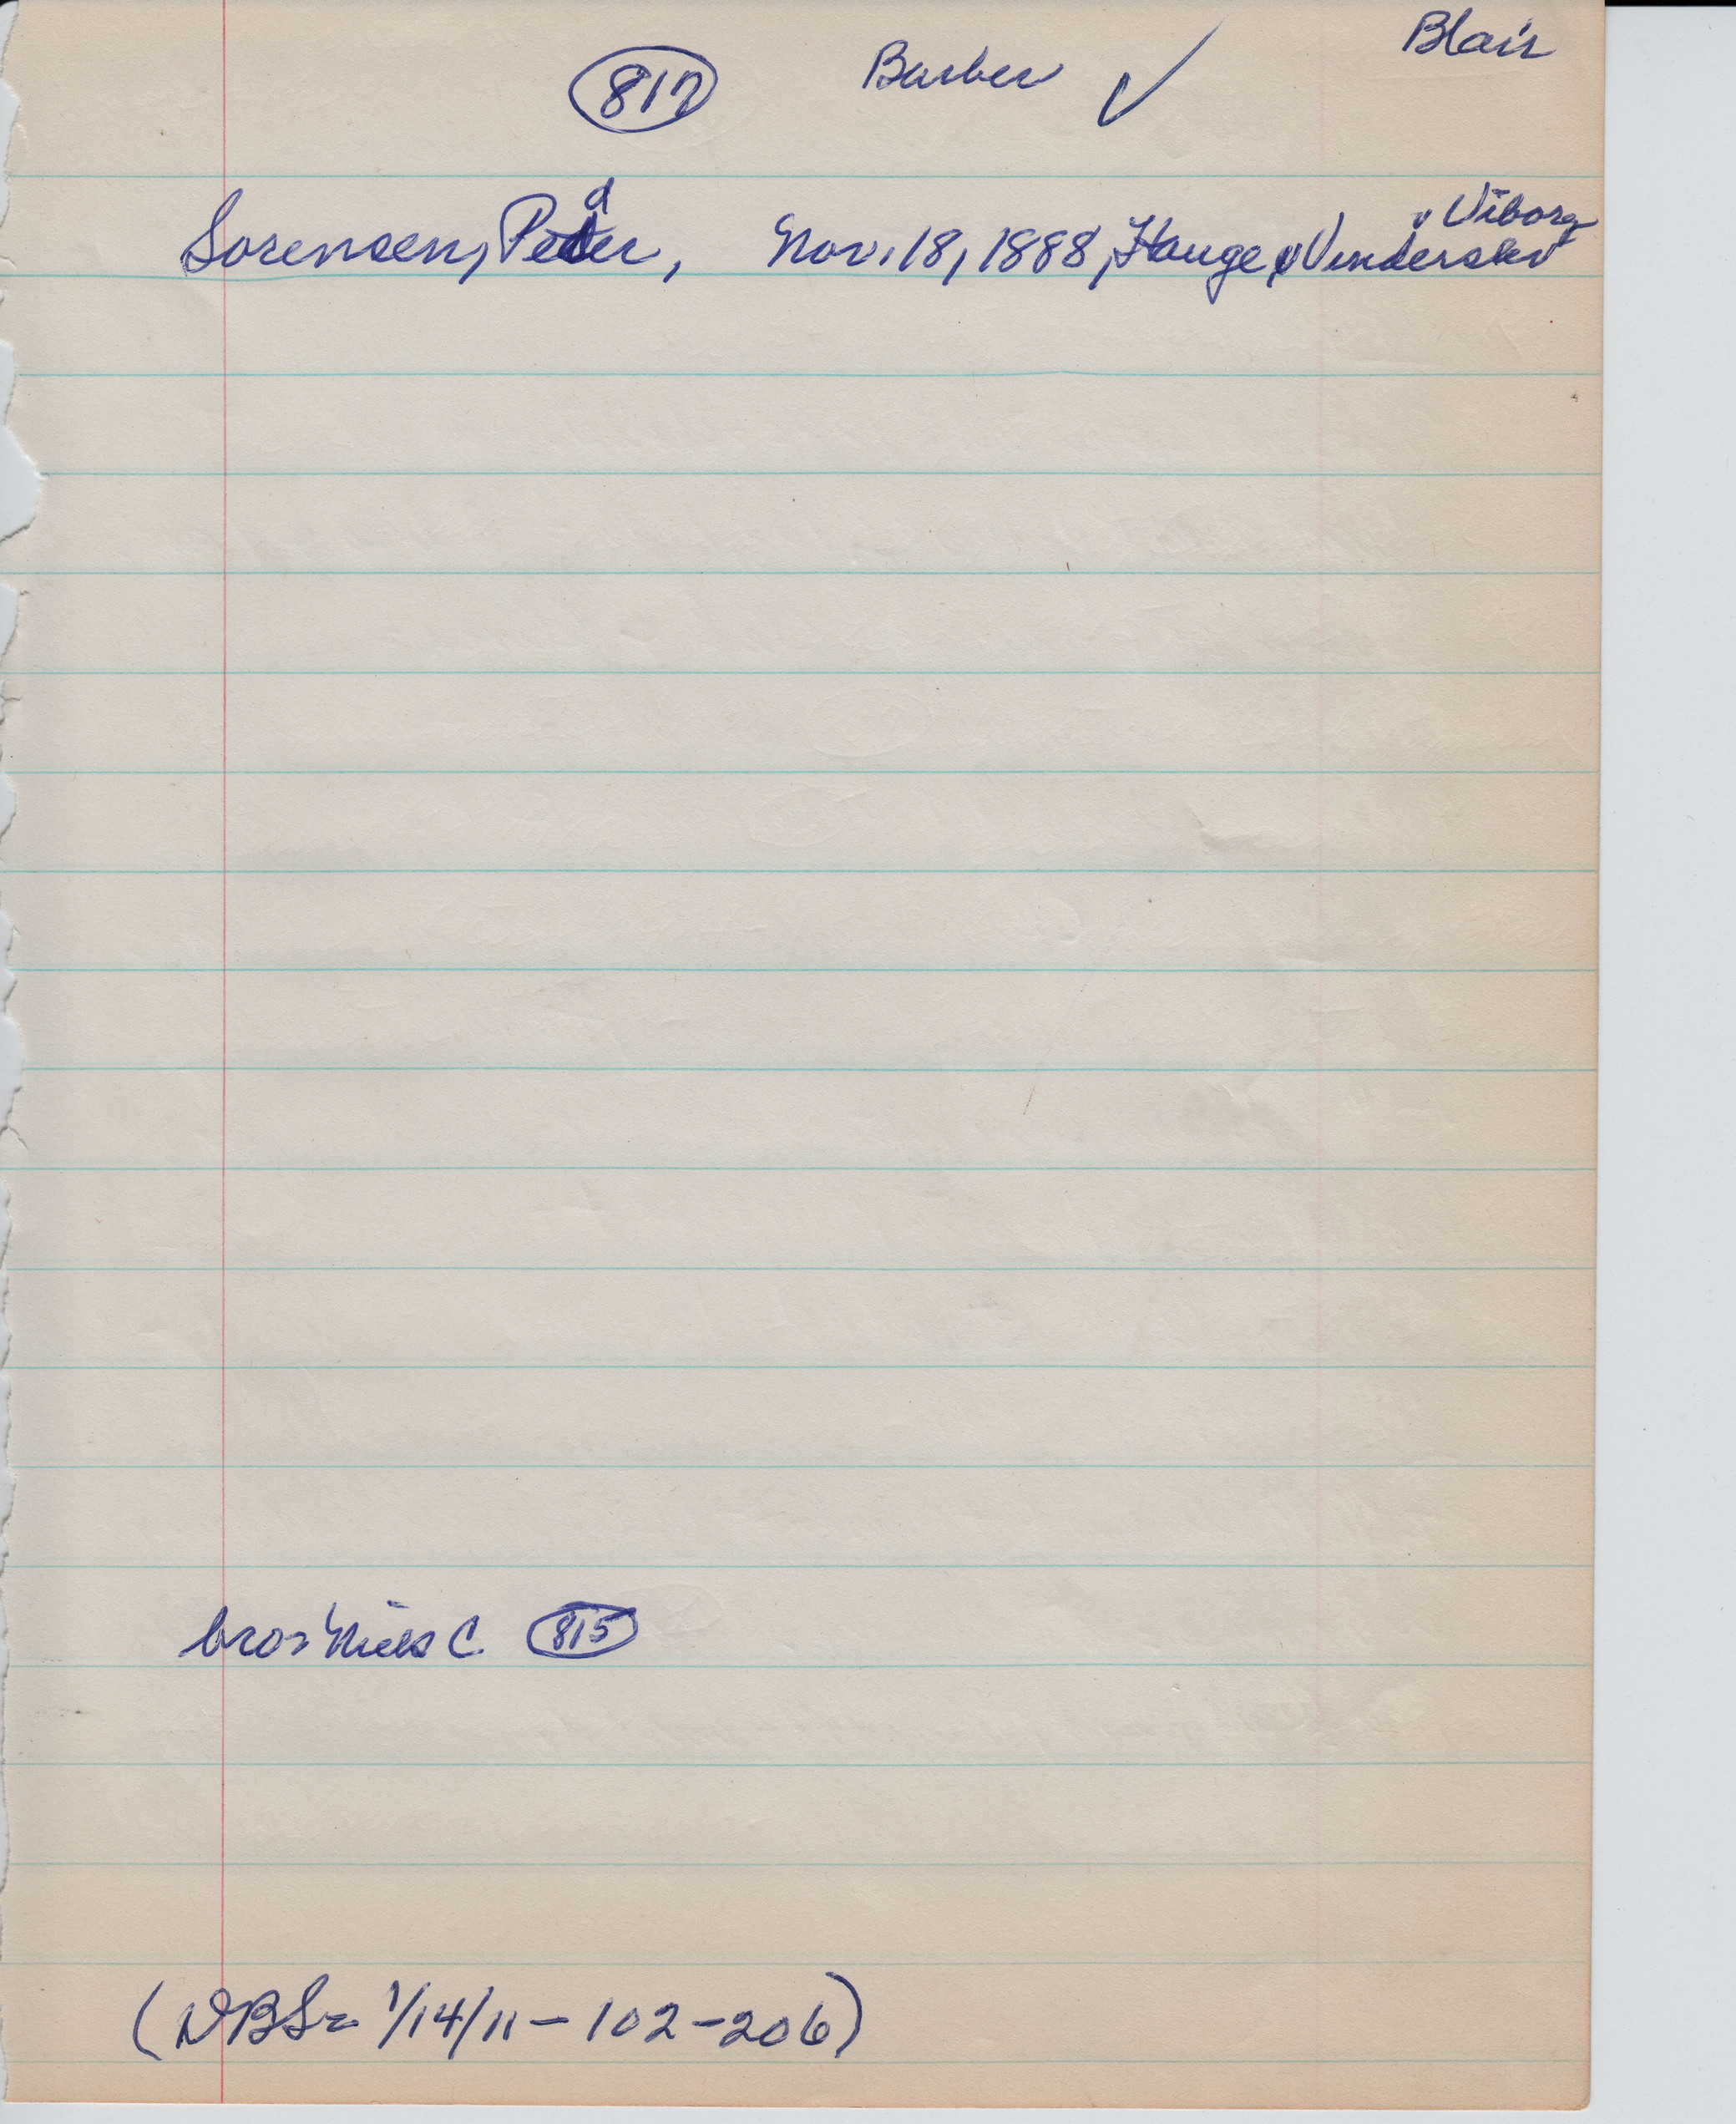 Blair
817 Barber ✓
v Viborg
Sorensen, Peder, Nov. 18, 1888, Hauge, v Vinderslev
bro= Niels C. 815
(DBS= 1/14/11 – 102 – 206)